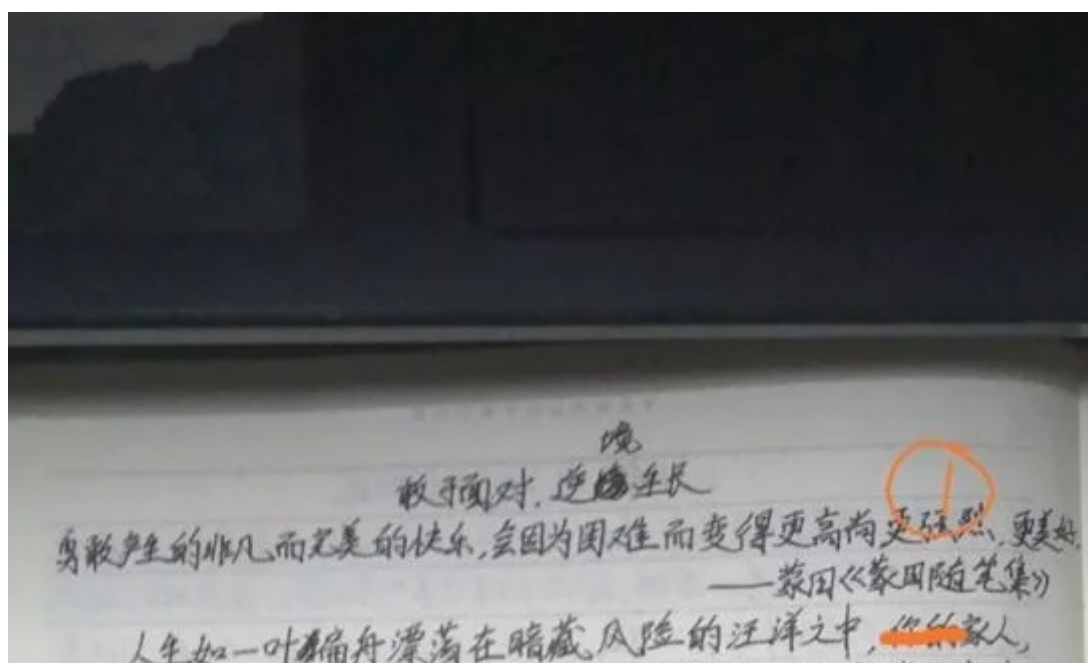 境
敢于面对,逆生长
勇敢产生的非凡而完美的快乐,会因为困难而变得更高尚更强烈,更美好,
——蒙田《蒙田随笔集》
人生如一叶扁舟漂荡在暗藏风险的汪洋之中,家人,
①